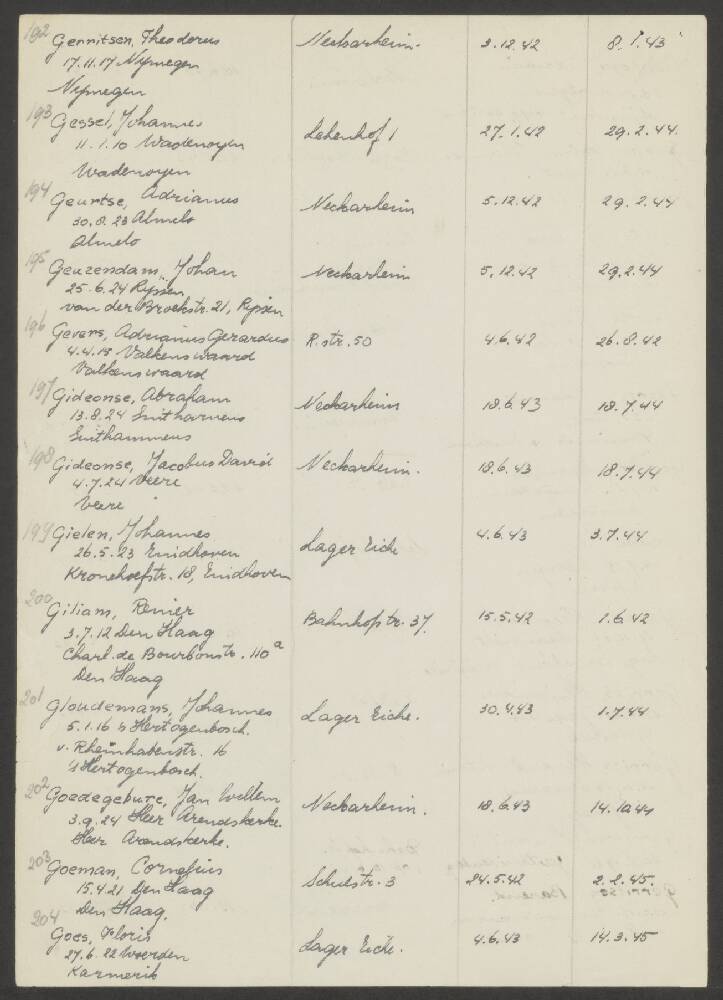 192
Gerritsen, Theodorus Neckarheim. 2.12.42 8.1.43
17.11.17 Nymegen
Nymegen
193
Gessel, Johannes Lehenhof 1 27.1.42 29.2.44.
11.1.10 Wadenoyen
Wadenoyen
194
Geurtse, Adrianus Neckarheim 5.12.42 29.2.44
30.8.23 Almelo
Almelo
195
Geuzendam, Johan Neckarheim 5.12.42 29.2.44
25.6.24 Ryssen
van der Broekstr. 21, Ryssen
196
Gevers, Adrianus Gerardus R.str. 50 4.6.42 26.8.42
4.4.15 Valkenswaard
Valkenswaard
197
Gideonse, Abraham Neckarheim 18.6.43 18.7.44
13.8.24
198
Gideonse, Jacobus David Neckarheim. 18.6.43 18.7.44
4.7.24 Veere
Veere
199
Gielen, Johannes Lager Eiche 4.6.43 3.7.44
26.5.23 Eindhoven
Kronehoefstr. 18, Eindhoven
200
Giliam, Renier Bahnhofstr. 37. 15.5.42 1.6.42
3.7.12 Den Haag
Charl. de Bourbonstr. 110a
Den Haag
201
Gloudemans, Johannes Lager Eiche. 30.4.43 1.7.44
5.1.16 's Hertogenbosch.
v. Rheinhabenstr. 16
's Hertogenbosch.
202
Goedegebure, Jan Willem Neckarheim. 18.6.43 14.10.44
3.9.24 Heer Arendskerke.
Heer Arendskerke.
203
Goeman, Cornelius Schulstr. 3 24.5.42 2.2.45.
15.4.21 Den Haag
Den Haag.
204
Goes, Floris Lager Eiche. 4.6.43 14.3.45
27.6.22 Woerden
Kamerik